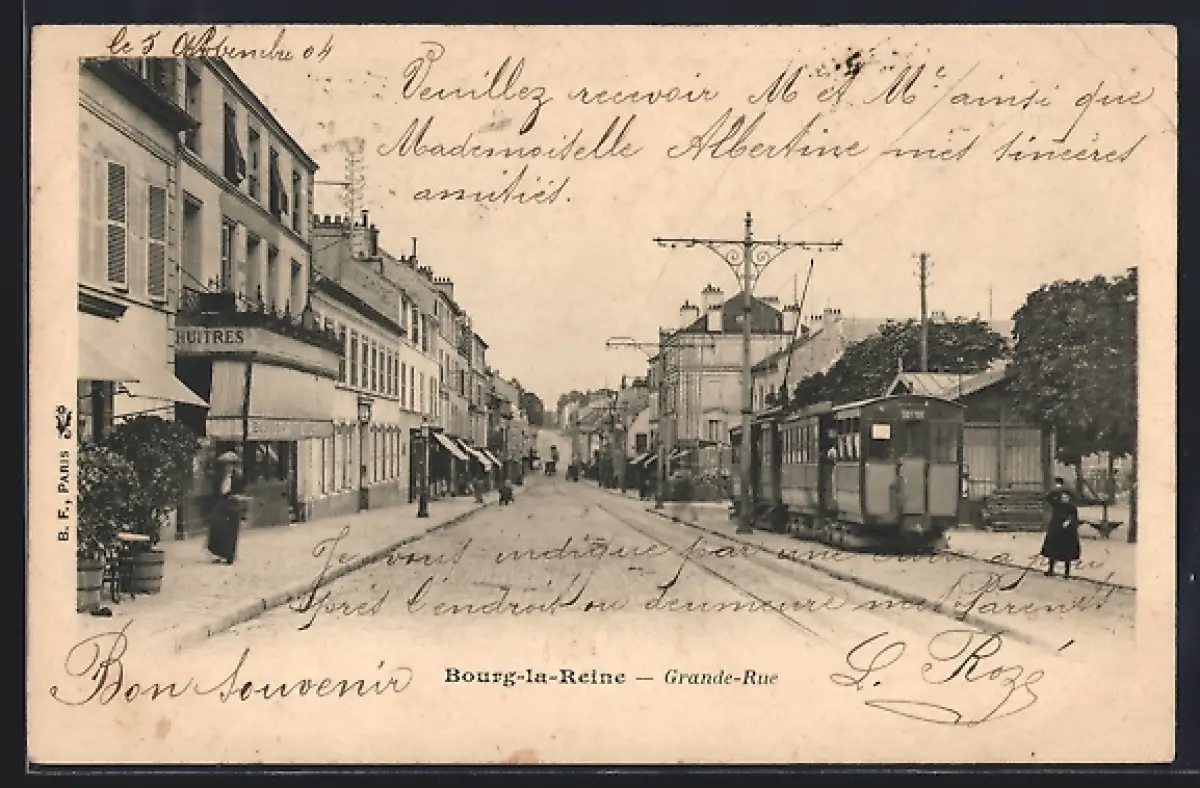 le 5 04
Veuillez recevoir Mr et Me ainsi que
Mademoiselle Albertine mes sincères
amitiés.
HUITRES
B. F., PARIS
Je vous indique par une croix à peu
près l'endroit ou demeure mes Parents
Bon Souvenir
Bourg-la-Reine — Grande-Rue
L. Rozé